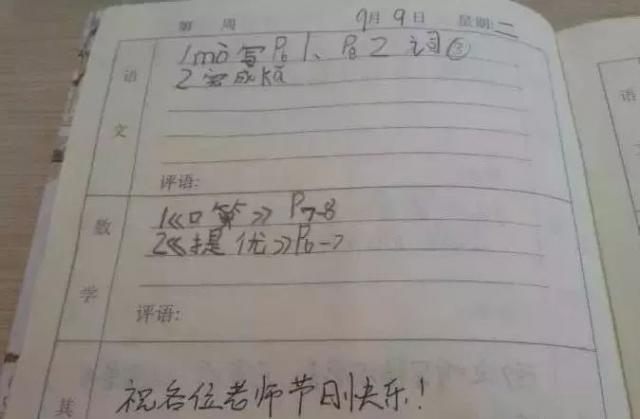 第 周 9月9日 星期:二
语文
1 mò写P61、P82 词③
2 完成kǎ
评语:
数学
1《口算》P7-8
2《提优》P6-7
评语:
其
祝各位老师节日快乐!
语